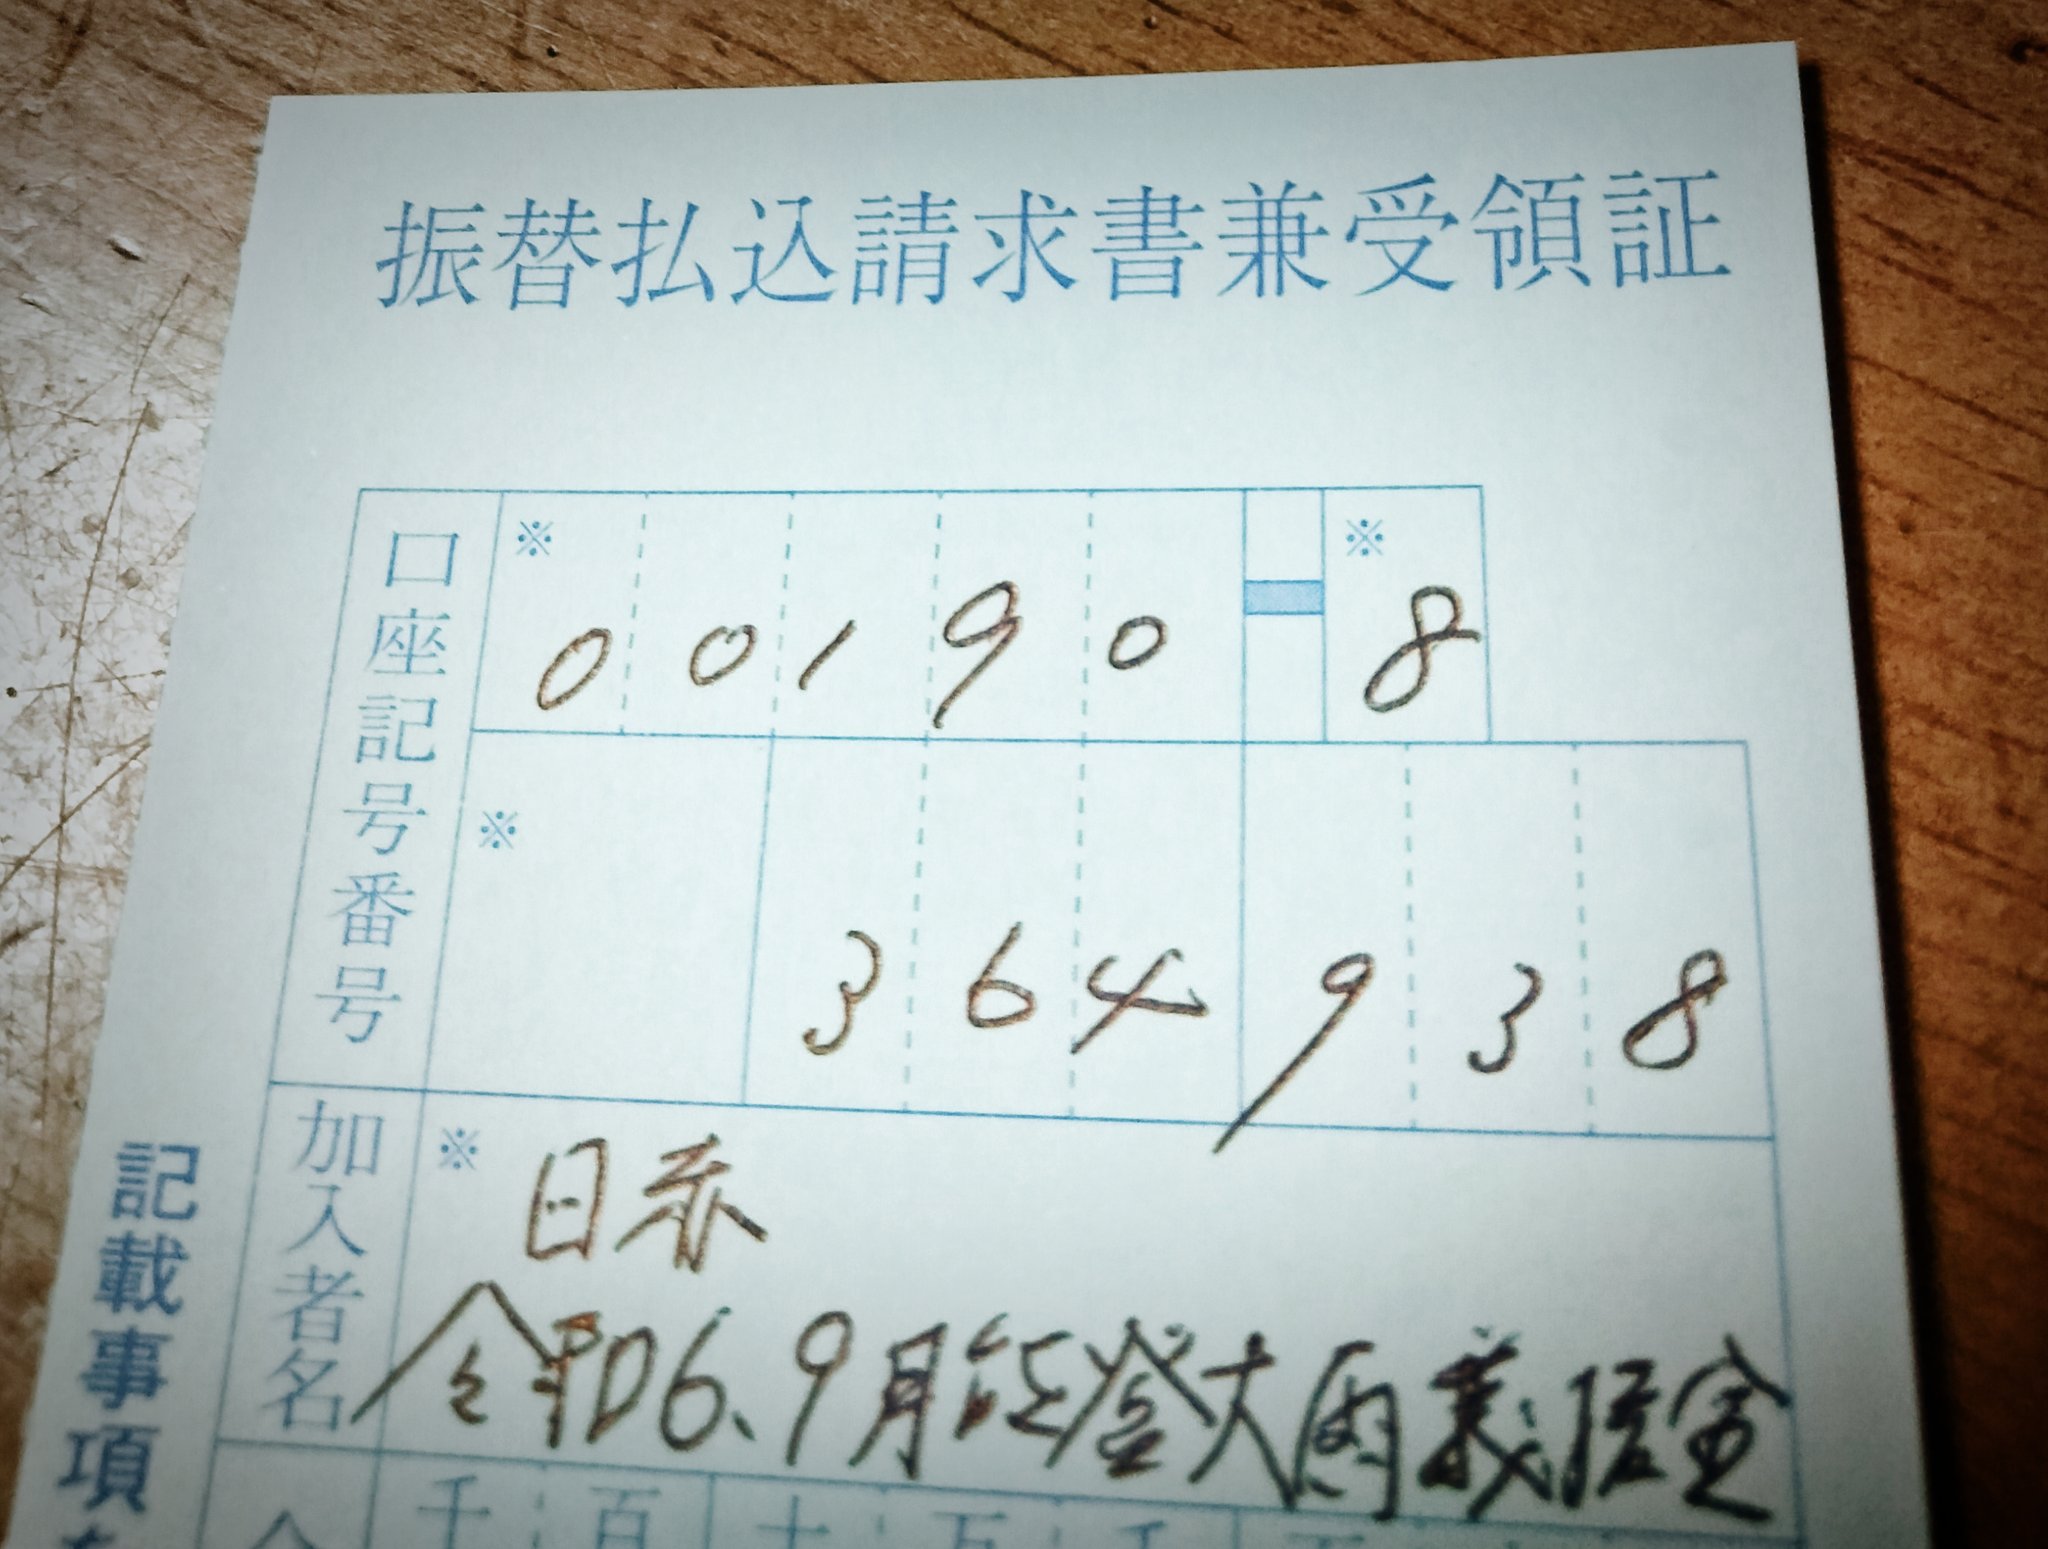 振替払込請求書兼受領証
口座記号番号
※ 00190-※ 8
※ 364938
加入者名
※ 日赤
令和6.9月能登大雨義援金
千 百 十 万 千
記載事項を